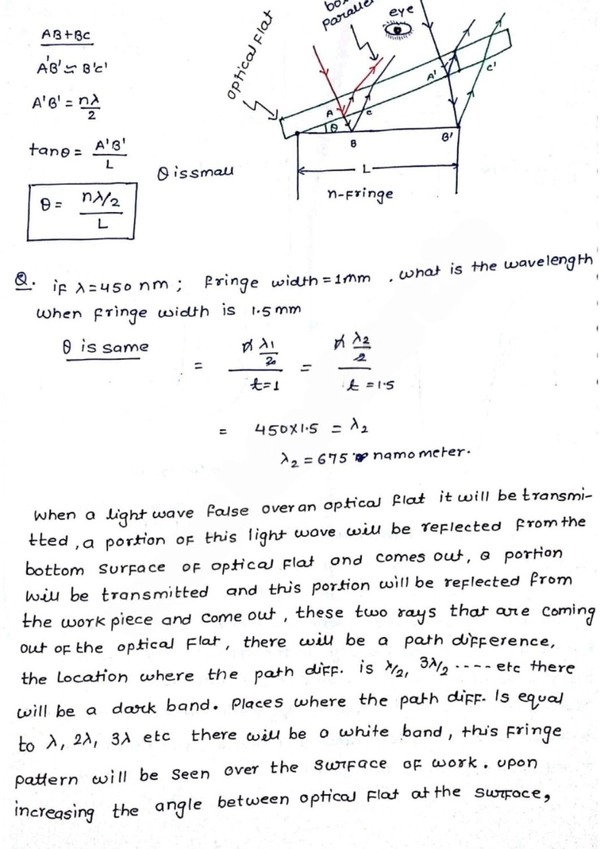 AB+BC
A'B' ≃ B'C'
A'B' = nλ/2
tanθ = A'B'/L
θ is small
θ = nλ/2 / L
optical flat
parallel
eye
A
C
θ
B
A'
C'
B'
L
n-fringe
Q. if λ=450 nm ; fringe width=1mm , what is the wavelength
when fringe width is 1.5mm
θ is same
= n λ1/2 / t=1 = n λ2/2 / t=1.5
= 450×1.5 = λ2
λ2 = 675 namometer.
When a light wave false over an optical flat it will be transmi-
tted, a portion of this light wave will be reflected from the
bottom surface of optical flat and comes out, a portion
will be transmitted and this portion will be reflected from
the work piece and come out, these two rays that are coming
out of the optical flat, there will be a path difference,
the location where the path diff. is λ/2, 3λ/2 ---- etc there
will be a dark band. Places where the path diff. Is equal
to λ, 2λ, 3λ etc there will be a white band, this fringe
pattern will be seen over the surface of work. upon
increasing the angle between optical flat at the surface,